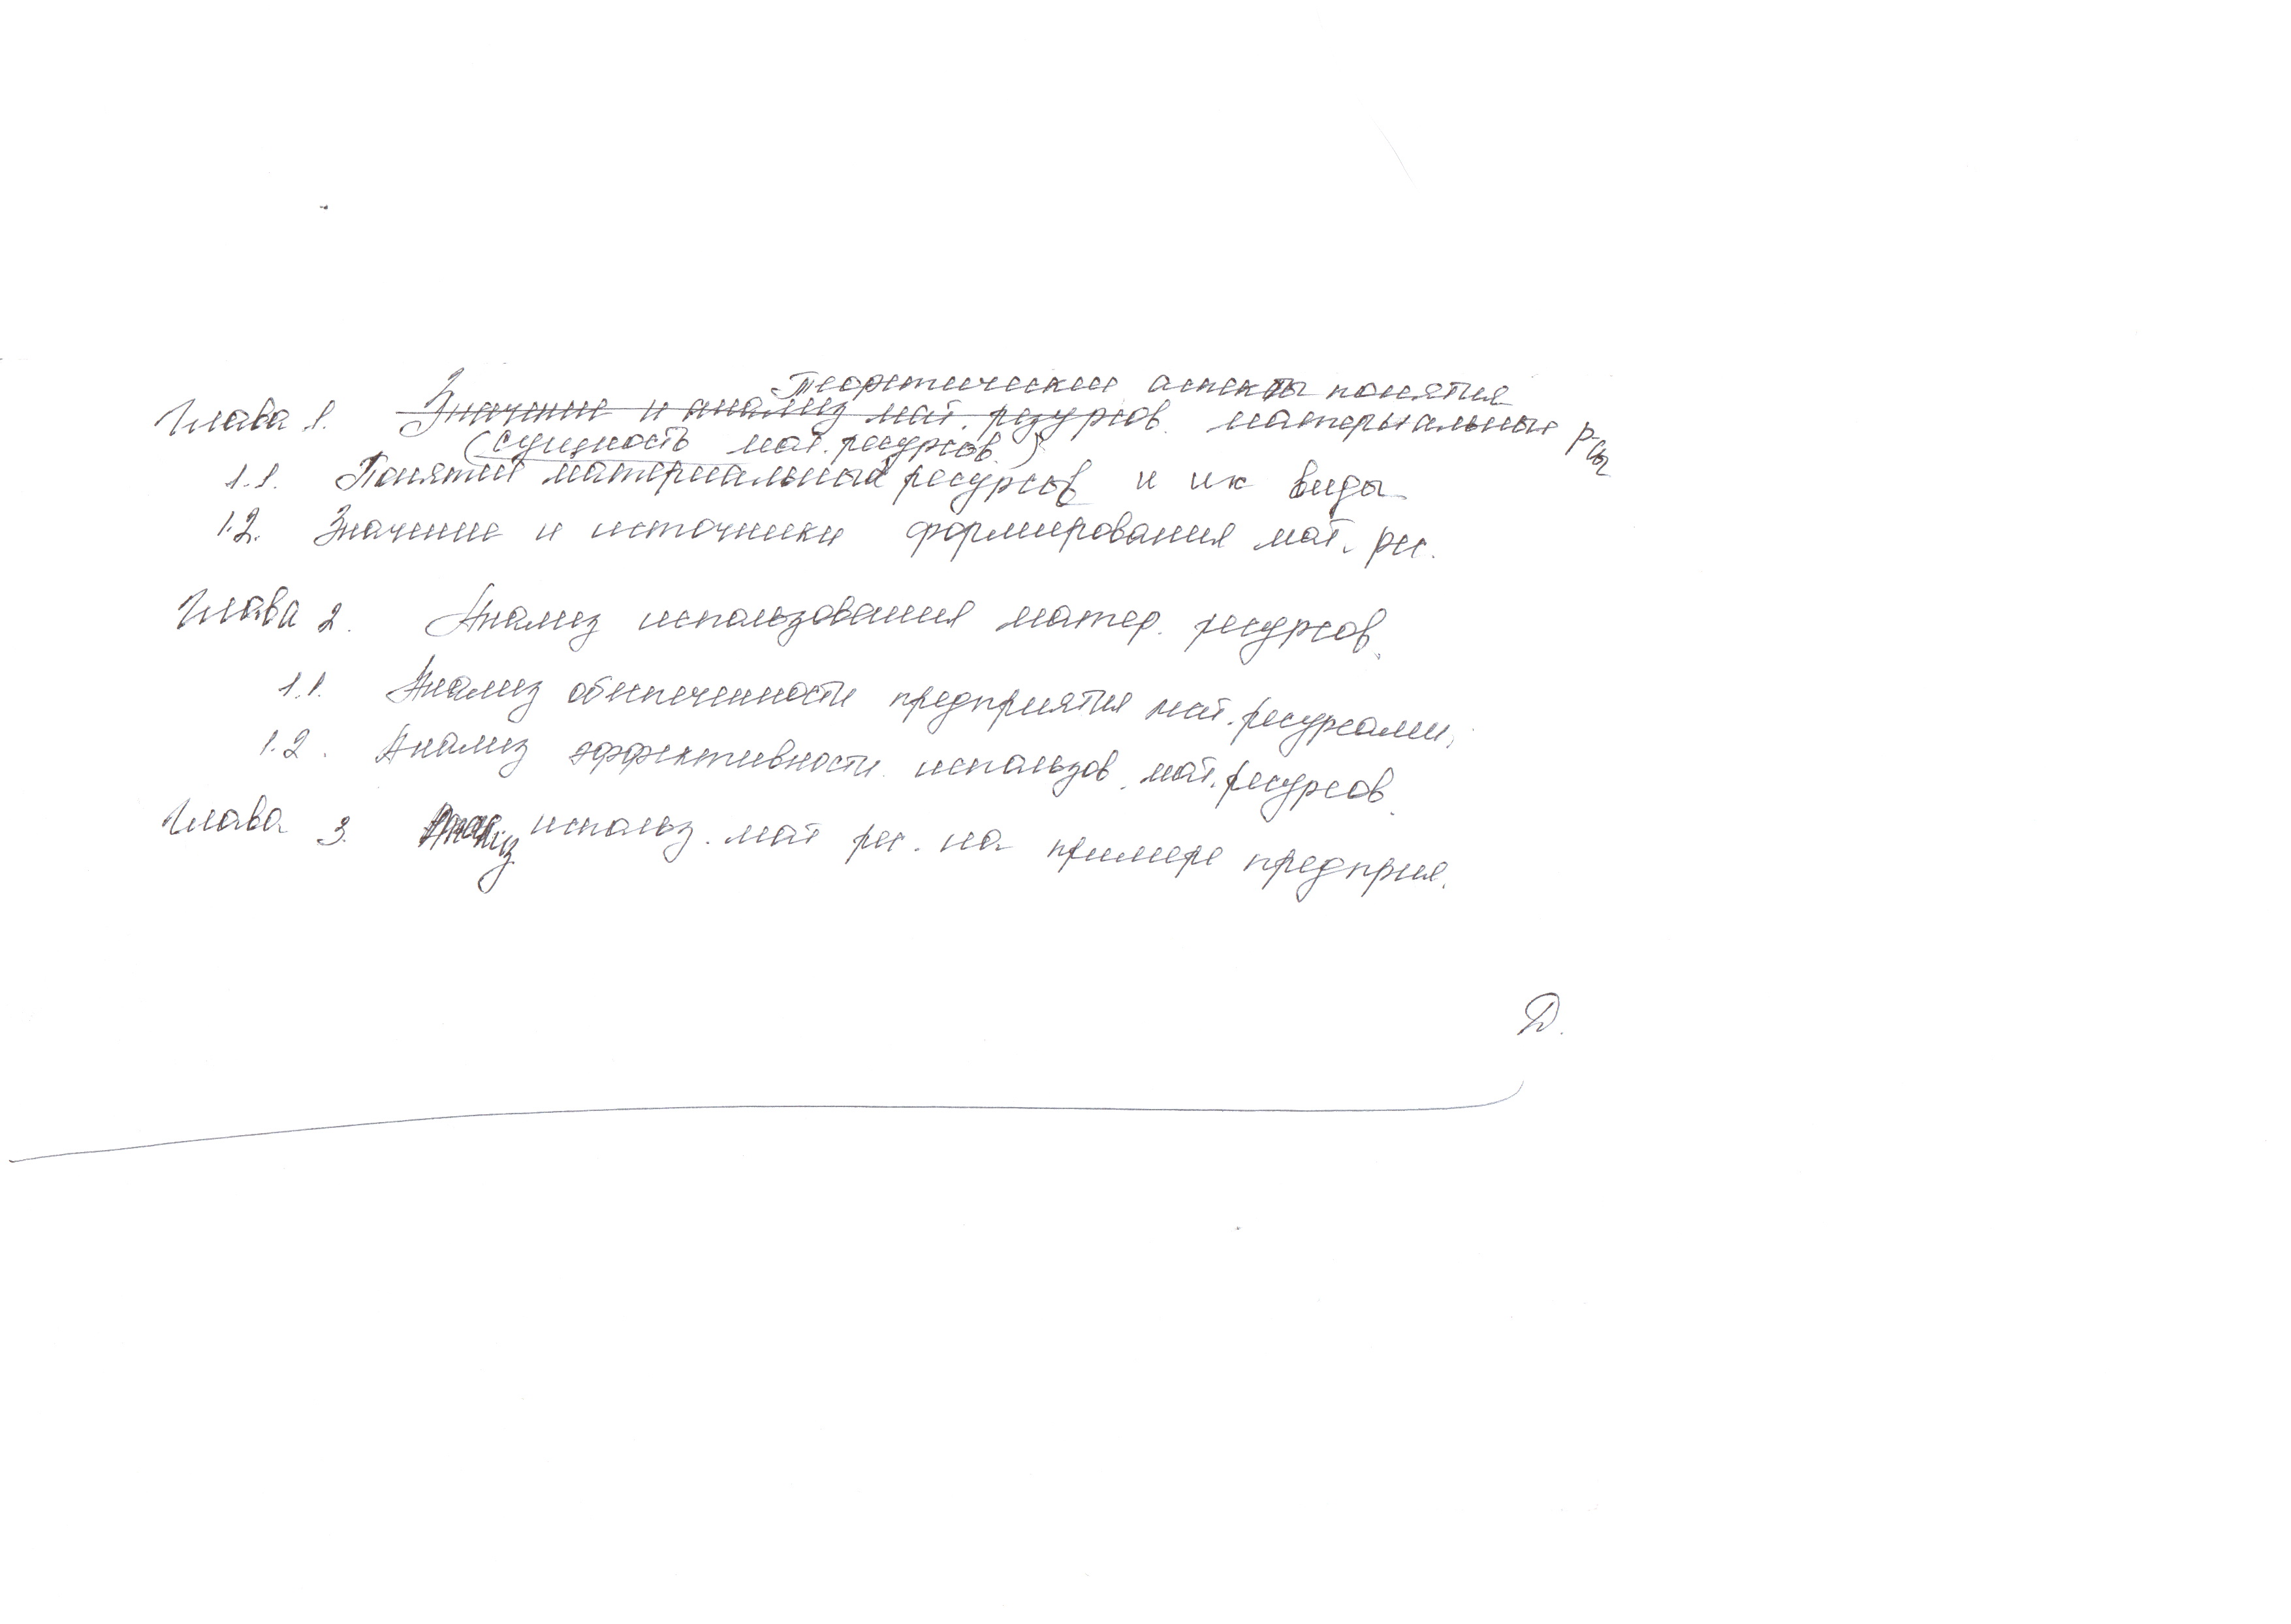 Теоретические аспекты понятия
Глава 1. Значение и анализ мат. резурсов. материальные р-сы
(сущность мат. ресурсов)
1.1. Понятие материальных ресурсов и их виды
1.2. Значение и источники формирования мат. рес.
Глава 2. Анализ использования матер. ресурсов.
1.1. Анализ обеспеченности предприятия мат. ресурсами.
1.2. Анализ эффективности использов. мат. ресурсов.
Глава 3. Анализ использ. мат рес. на примере предприя.
Д.